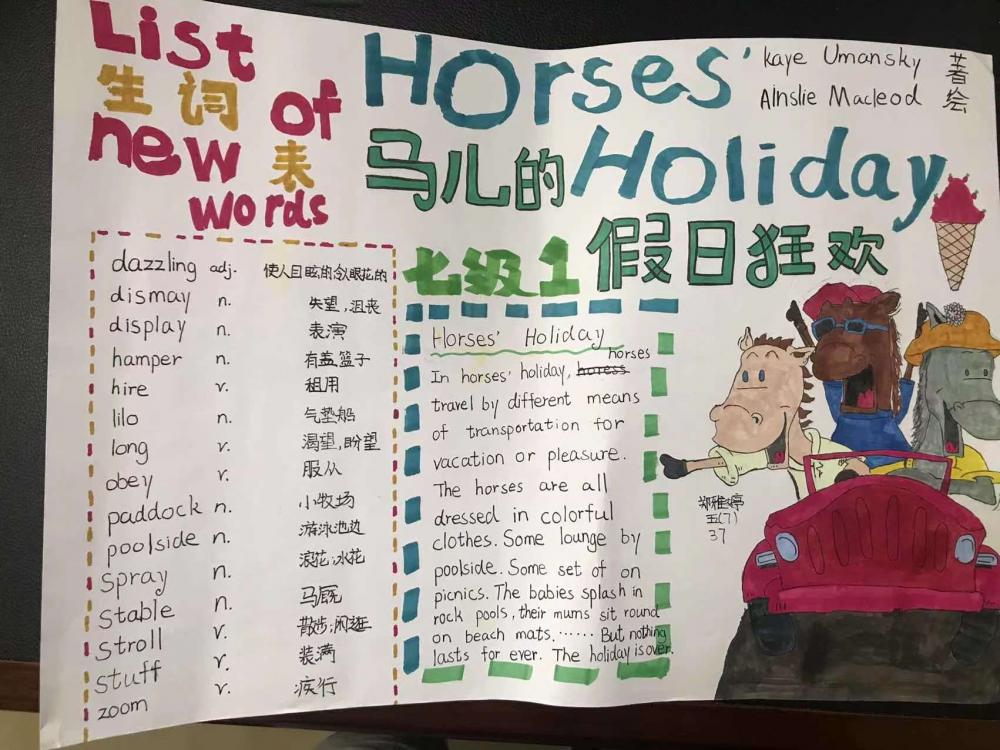 List
生词
of
new 表
words
Horses'
Kaye Umansky 著
Ainslie Macleod 绘
马儿的 Holiday
七级1 假日狂欢
dazzling adj. 使人目眩的;令人眼花的
dismay n. 失望,沮丧
display n. 表演
hamper n. 有盖篮子
hire v. 租用
lilo n. 气垫船
long v. 渴望,盼望
obey v. 服从
paddock n. 小牧场
poolside n. 游泳池边
spray n. 浪花;水花
stable n. 马厩
stroll v. 散步;闲逛
stuff v. 装满
zoom v. 疾行
Horses' Holiday
In horses' holiday, horses
travel by different means
of transportation for
vacation or pleasure.
The horses are all
dressed in colorful
clothes. Some lounge by
poolside. Some set of on
picnics. The babies splash in
rock pools, their mums sit round
on beach mats. ...... But nothing
lasts for ever. The holiday is over.
五(7)
37